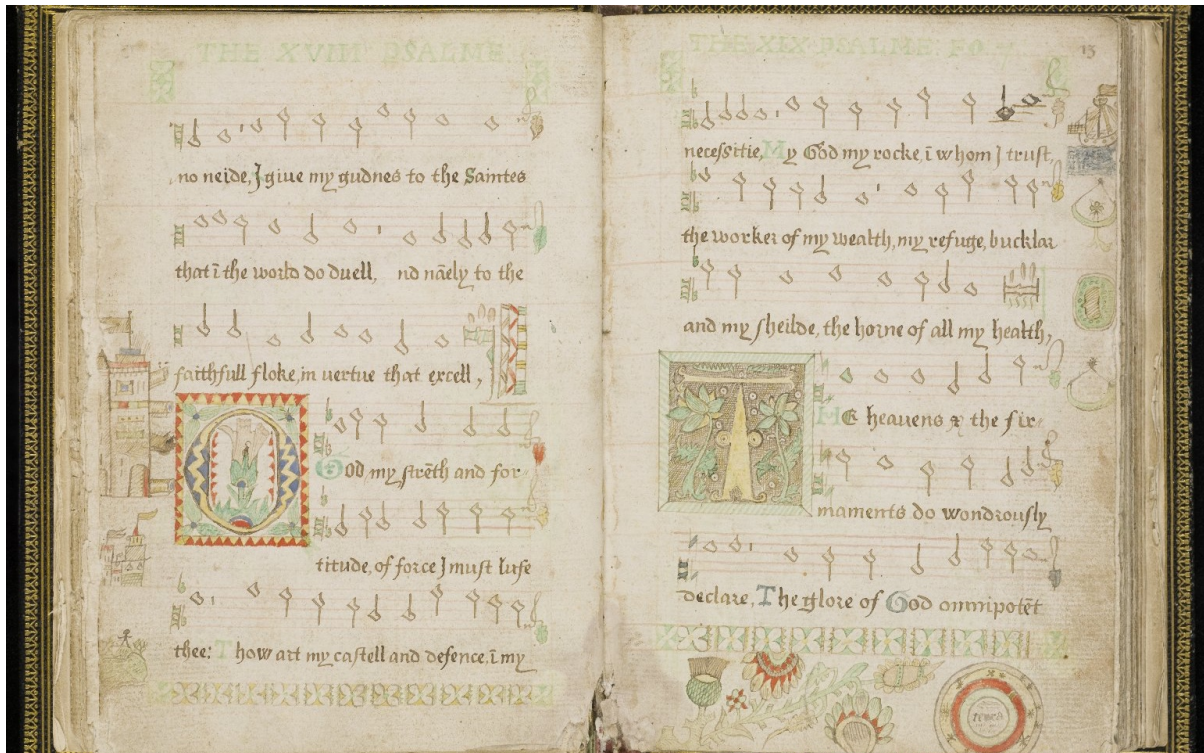 THE XVIII PSALME
no neide, I giue my gudnes to the Saintes
that ī the world do duell, nō nāely to the
faithfull floke, in uertue that excell,
O God my strēth and for
titude, of force I must lufe
thee: Thow art my castell and defence, ī my
THE XIX PSALME FO
13
necessitie, My God my rocke, ī whom I trust,
the worker of my wealth, my refuge, bucklar
and my sheilde, the horne of all my health,
T HE heauens & the fir
maments do wondrously
declare, The glore of God omnipotēt
terra